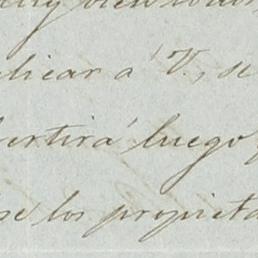 licar á V., se
ertirá luego
se los propieta